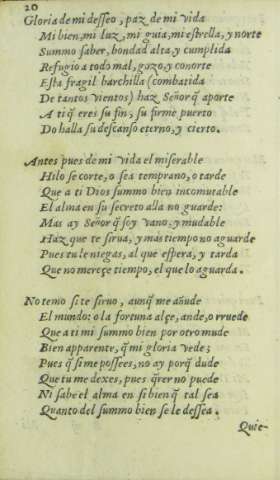 20
Gloria de mi desseo, paz de mi vida
Mi bien, mi luz, mi guia, mi estrella, y norte
Summo saber, bondad alta y cumplida
Refugio a todo mal, gozo, y conorte
Esta fragil barchilla (combatida
De tantos vientos) haz Señor q̃ aporte
A ti q̃ eres su fin, su firme puerto
Do halla su descanso eterno, y cierto.
Antes pues de mi vida el miserable
Hilo se corte, o sea temprano, o tarde
Que a ti Dios summo bien incomutable
El alma en su secreto alla no guarde:
Mas ay Señor q̃ soy vano, y mudable
Haz que te sirua, y más tiempo no aguarde
Pues tu le niegas, al que espera, y tarda
Que no merece tiempo, el que lo aguarda.
No temo si te siruo, aunq̃ me añude
El mundo: o la fortuna alçe, ande, o rruede
Que a ti mi summo bien por otro mude
Bien apparente, q̃ mi gloria vede;
Pues q̃ si me possees, no ay porq̃ dude
Que tu me dexes, pues q̃rer no puede
Ni sabe el alma en si bien q̃ tal sea
Quanto del summo bien se le dessea.
Quie-